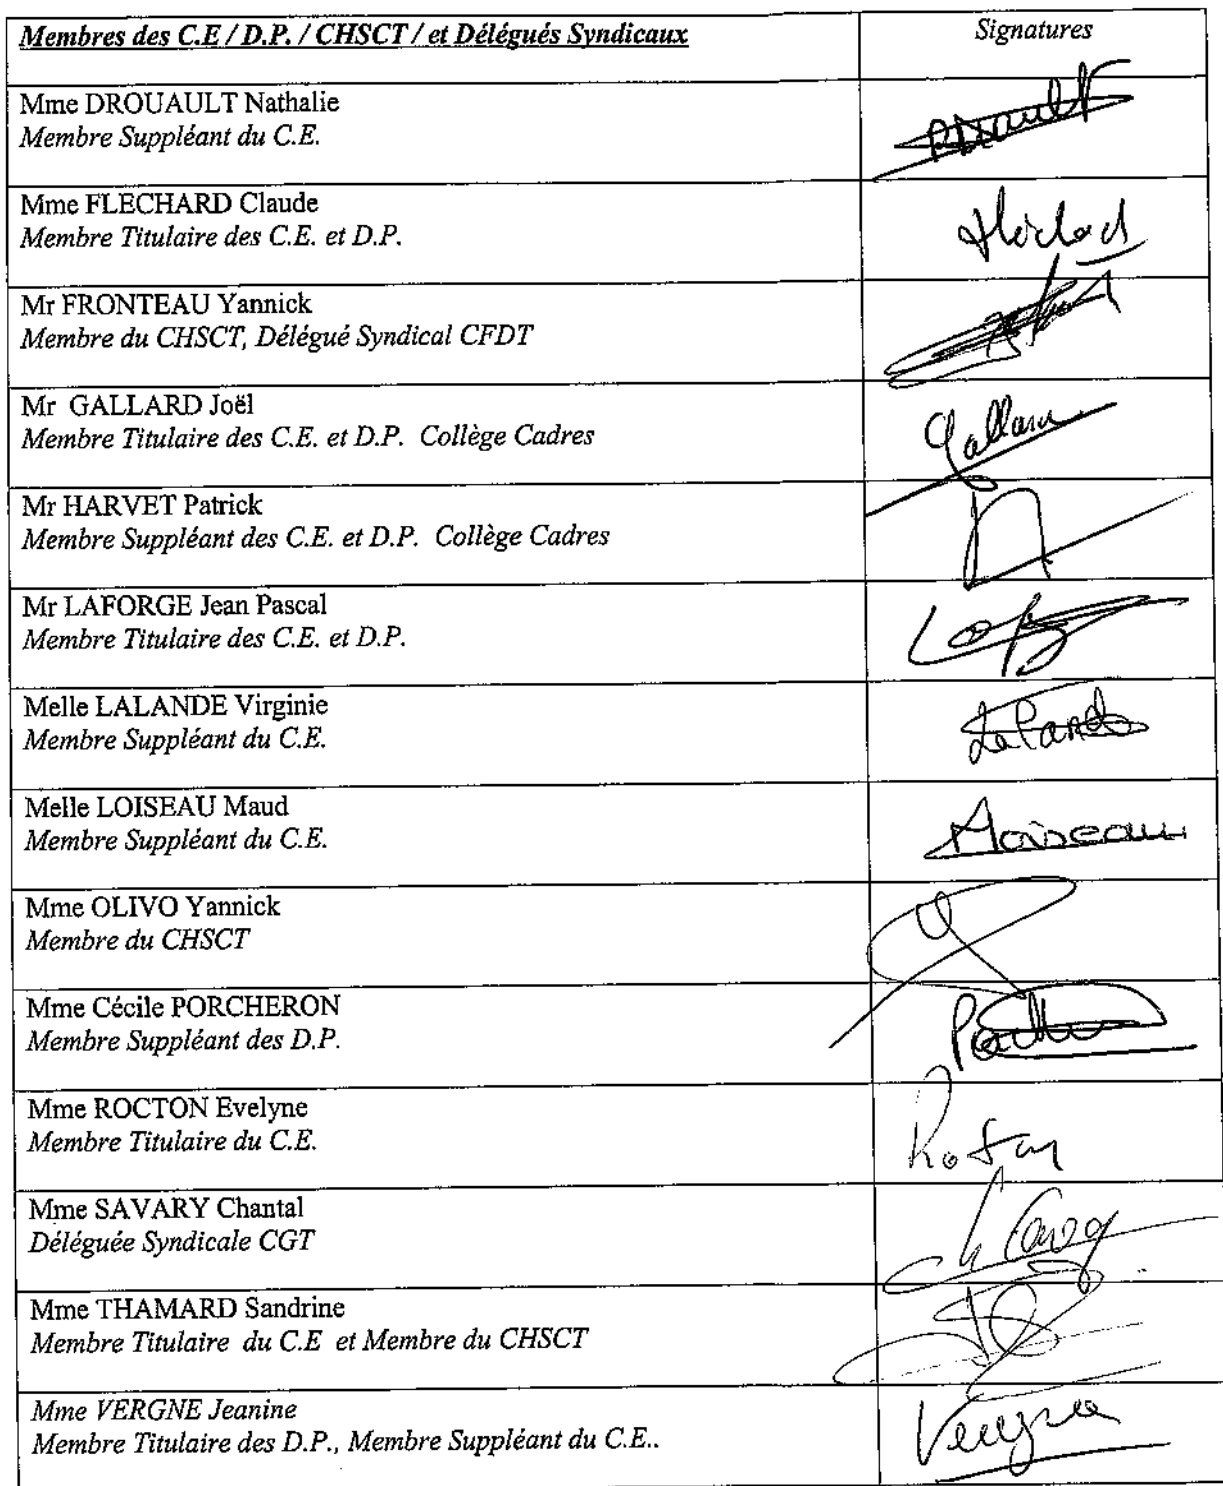 Membres des C.E / D.P. / CHSCT / et Délégués Syndicaux
Signatures
Mme DROUAULT Nathalie
Membre Suppléant du C.E.
Mme FLECHARD Claude
Membre Titulaire des C.E. et D.P.
Mr FRONTEAU Yannick
Membre du CHSCT, Délégué Syndical CFDT
Mr GALLARD Joël
Membre Titulaire des C.E. et D.P. Collège Cadres
Mr HARVET Patrick
Membre Suppléant des C.E. et D.P. Collège Cadres
Mr LAFORGE Jean Pascal
Membre Titulaire des C.E. et D.P.
Melle LALANDE Virginie
Membre Suppléant du C.E.
Melle LOISEAU Maud
Membre Suppléant du C.E.
Mme OLIVO Yannick
Membre du CHSCT
Mme Cécile PORCHERON
Membre Suppléant des D.P.
Mme ROCTON Evelyne
Membre Titulaire du C.E.
Mme SAVARY Chantal
Déléguée Syndicale CGT
Mme THAMARD Sandrine
Membre Titulaire du C.E et Membre du CHSCT
Mme VERGNE Jeanine
Membre Titulaire des D.P., Membre Suppléant du C.E..
Vergne